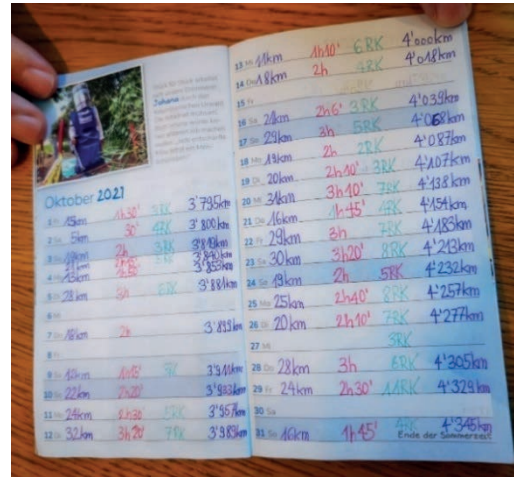 Johann
Oktober 2021
1 Fr 15km 1h30' 3RK 3'795km
2 Sa 5km 30' 4RK 3'800km
3 So 19km 2h 3RK 3'819km
3'840km
4 13km 3'853km
5 Di 28km 3h 6RK 3'881km
6 Mi
7 Do 18km 2h 3'899km
8 Fr
9 Sa 12km 3'911km
10 So 22km 2h20' 3'933km
11 Mo 24km 2h30' 5RK 3'957km
12 Di 32km 3h20' 7RK 3'989km
13 Mi 11km 1h10' 6RK 4'000km
14 Do 18km 2h 4RK 4'018km
15 Fr
16 Sa 21km 2h6' 3RK 4'039km
17 So 29km 3h 5RK 4'068km
18 Mo 19km 2h 2RK 4'087km
19 Di 20km 2h10' 3RK 4'107km
20 Mi 31km 3h10' 7RK 4'138km
21 Do 16km 1h45' 4RK 4'154km
22 Fr 29km 3h 7RK 4'183km
23 Sa 30km 3h20' 8RK 4'213km
24 So 19km 2h 5RK 4'232km
25 Mo 25km 2h40' 8RK 4'257km
26 Di 20km 2h10' 7RK 4'277km
27 Mi 3RK
28 Do 28km 3h 6RK 4'305km
29 Fr 24km 2h30' 11RK 4'329km
30 Sa
31 So 16km 1h45' 4RK 4'345km
Ende der Sommerzeit